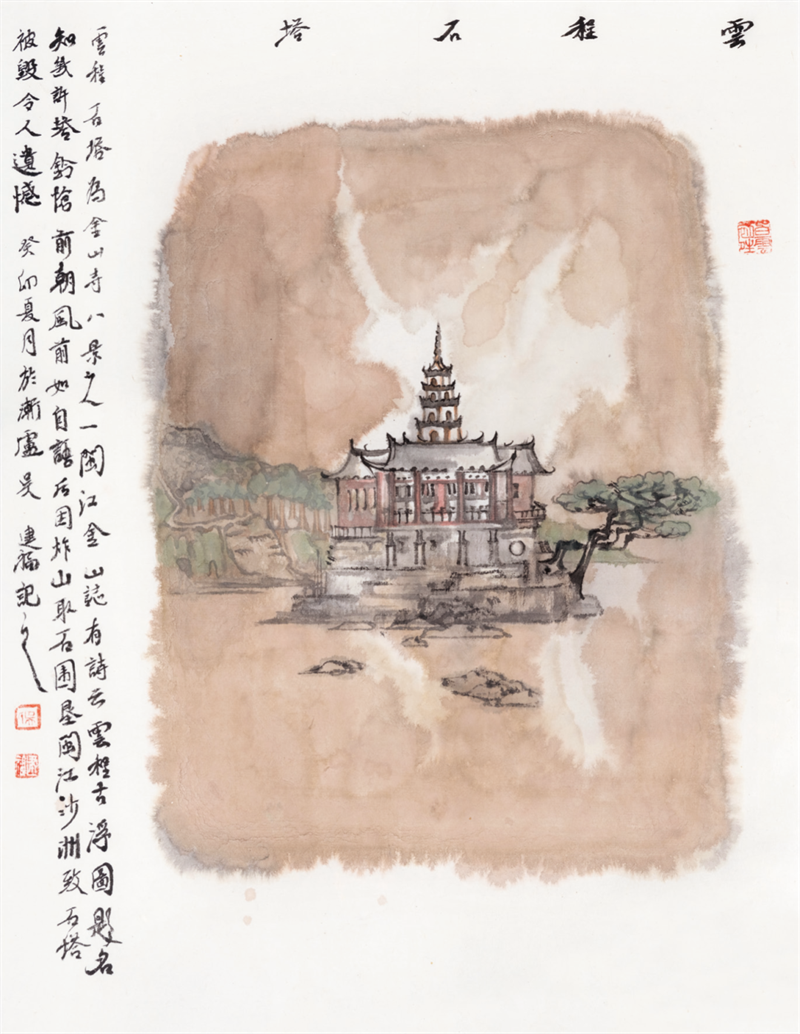 雲程石塔
雲程石塔為金山寺八景之一閩江金山誌有詩云雲程古浮圖題名
知幾許塔鈴愴前朝風前如自語后因炸山取石圍垦閩江沙洲致石塔
被毀令人遺憾 癸卯夏月於漸廬吴建福記